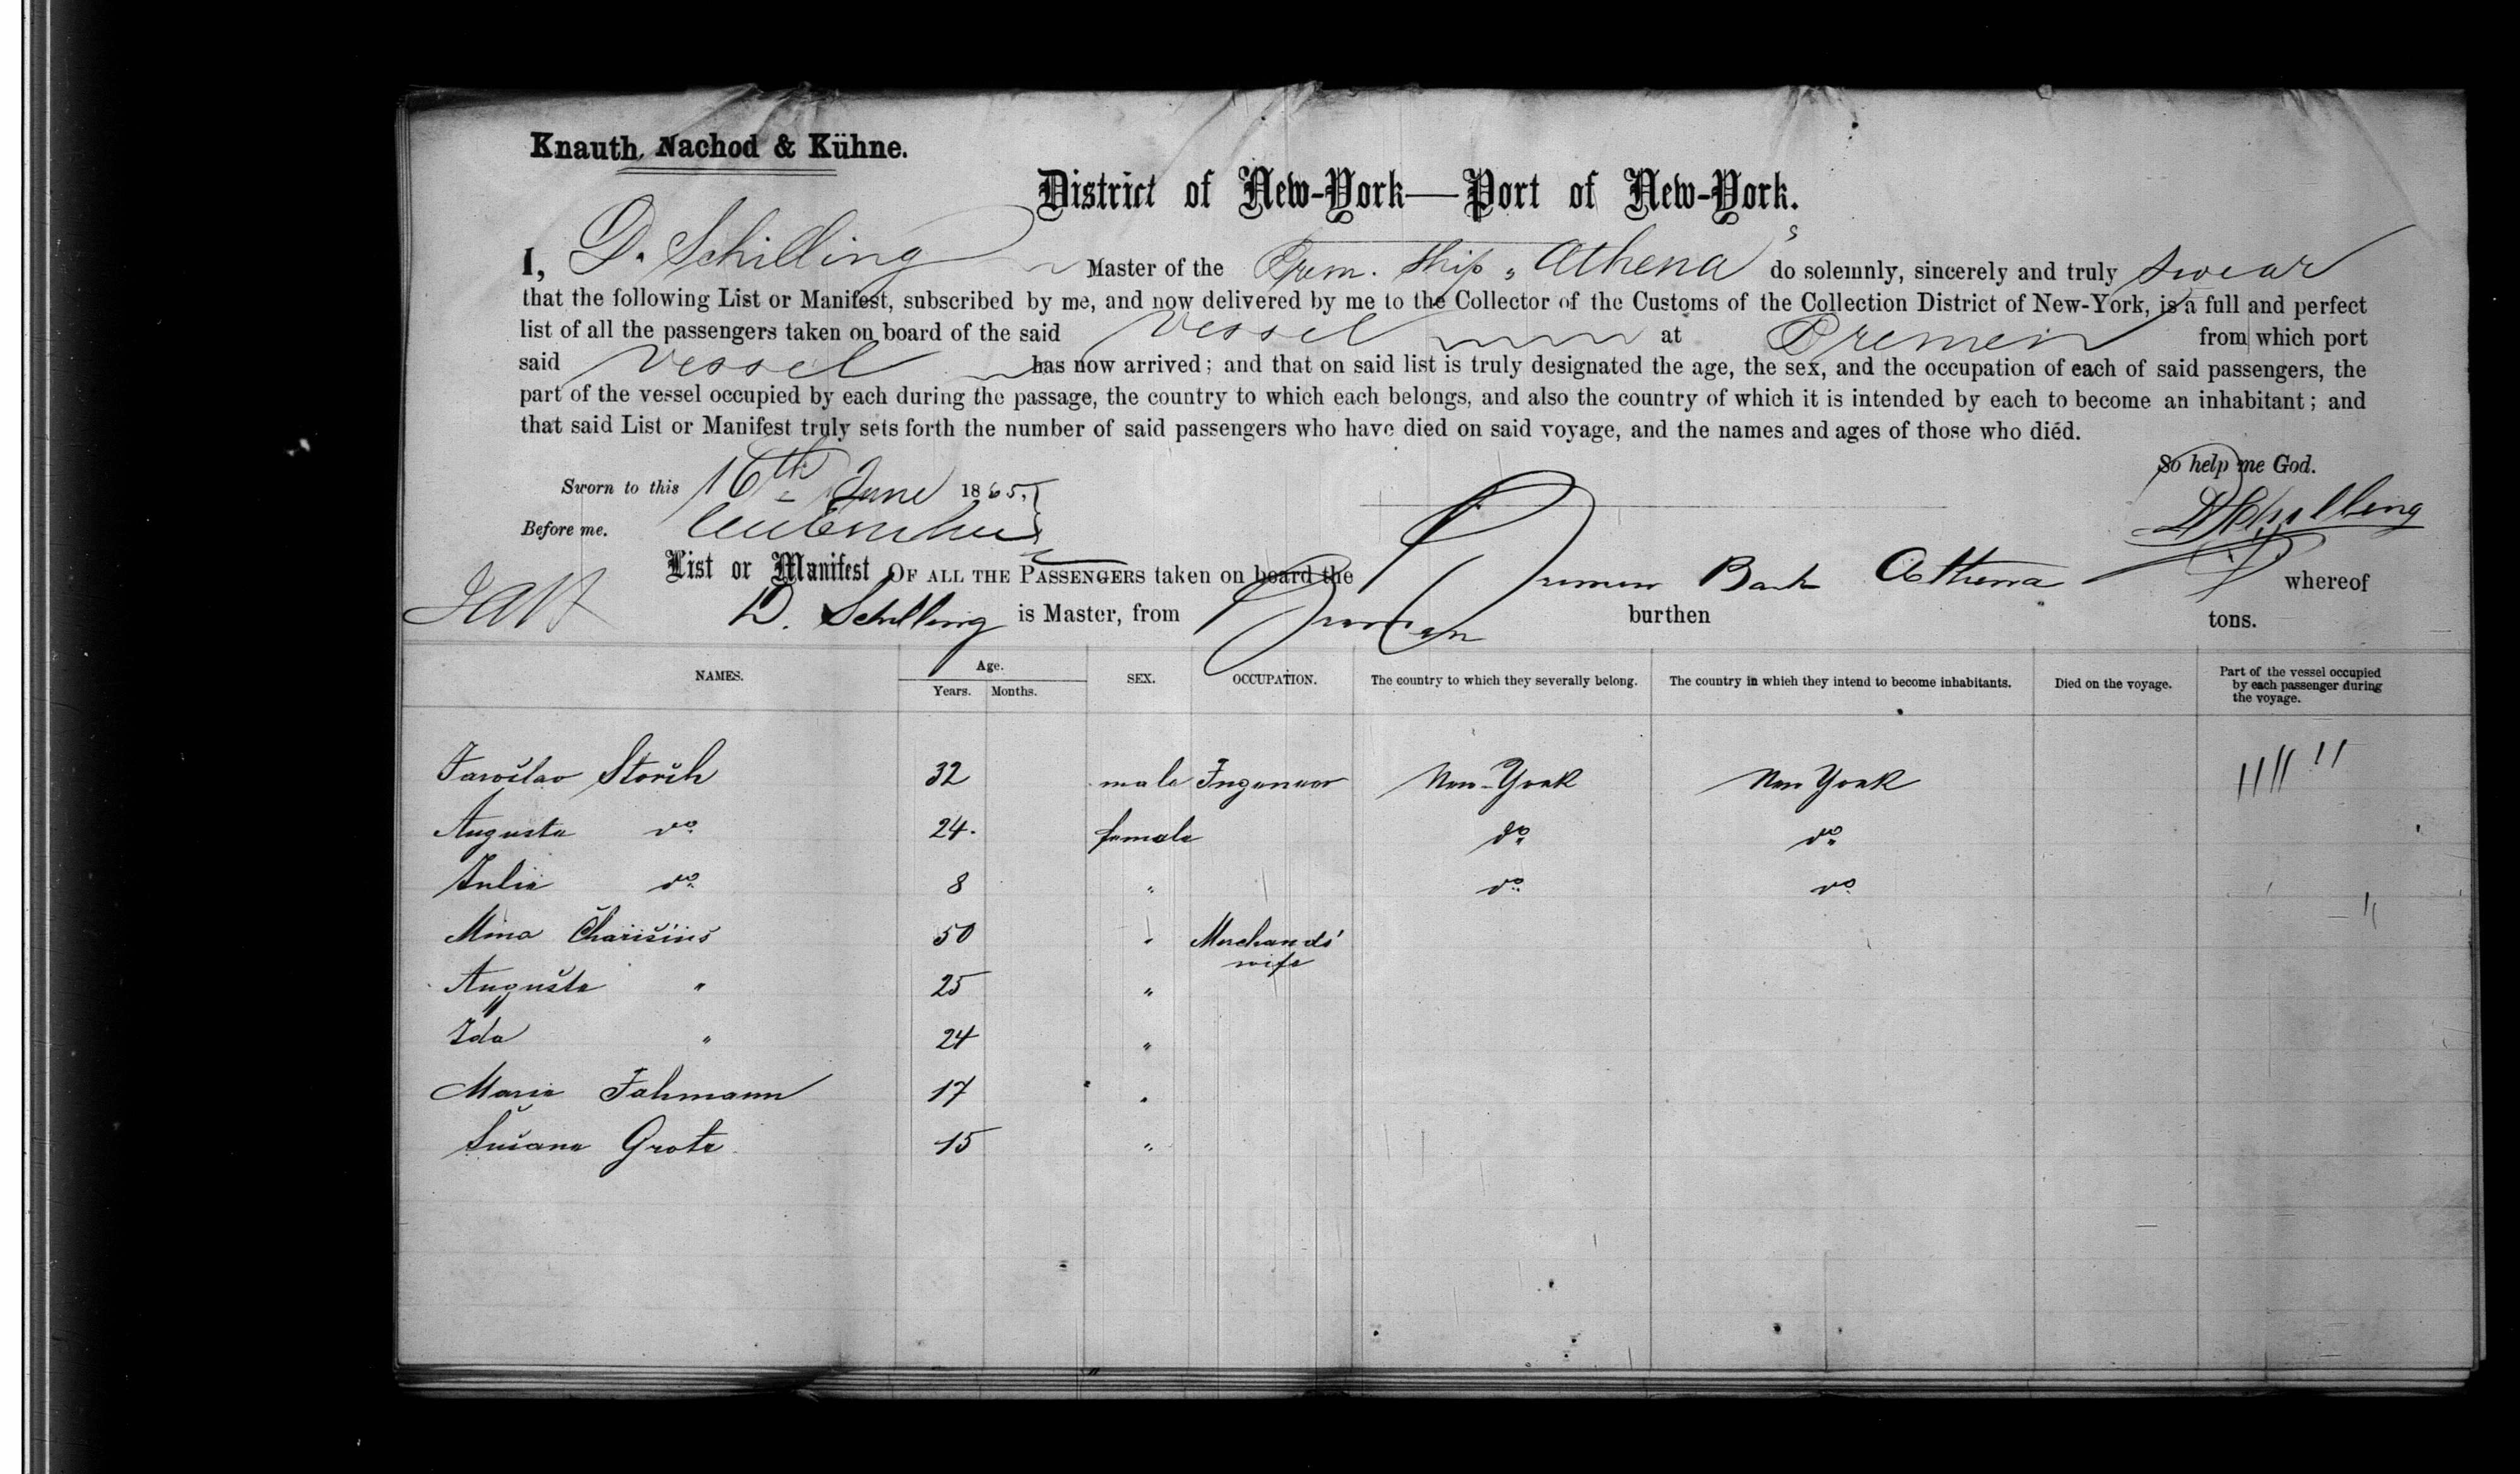 Knauth, Nachod & Kühne.
District of New-York—Port of New-York.
I, D. Schilling Master of the Brem. Ship „Athena" do solemnly, sincerely and truly swear
that the following List or Manifest, subscribed by me, and now delivered by me to the Collector of the Customs of the Collection District of New-York, is a full and perfect
list of all the passengers taken on board of the said vessel at Bremen from which port
said vessel has now arrived; and that on said list is truly designated the age, the sex, and the occupation of each of said passengers, the
part of the vessel occupied by each during the passage, the country to which each belongs, and also the country of which it is intended by each to become an inhabitant; and
that said List or Manifest truly sets forth the number of said passengers who have died on said voyage, and the names and ages of those who died.
So help me God.
Sworn to this 16th June 1865,
DSchilling
Before me.
List or Manifest OF ALL THE PASSENGERS taken on board the Bremen Bark Athena whereof
D. Schilling is Master, from Bremen burthen tons.
NAMES. Age. Years. Months. SEX. OCCUPATION. The country to which they severally belong. The country in which they intend to become inhabitants. Died on the voyage. Part of the vessel occupied by each passenger during the voyage.
Jaroslav Storch 32 male Ingeneur New-York New York
Augusta do 24. female do do
Julia do 8 " do do
Mina Charisius 50 " Merchands' wife
Augusta " 25 "
Ida " 24 "
Maria Fahmann 17 "
Susana Grote 15 "